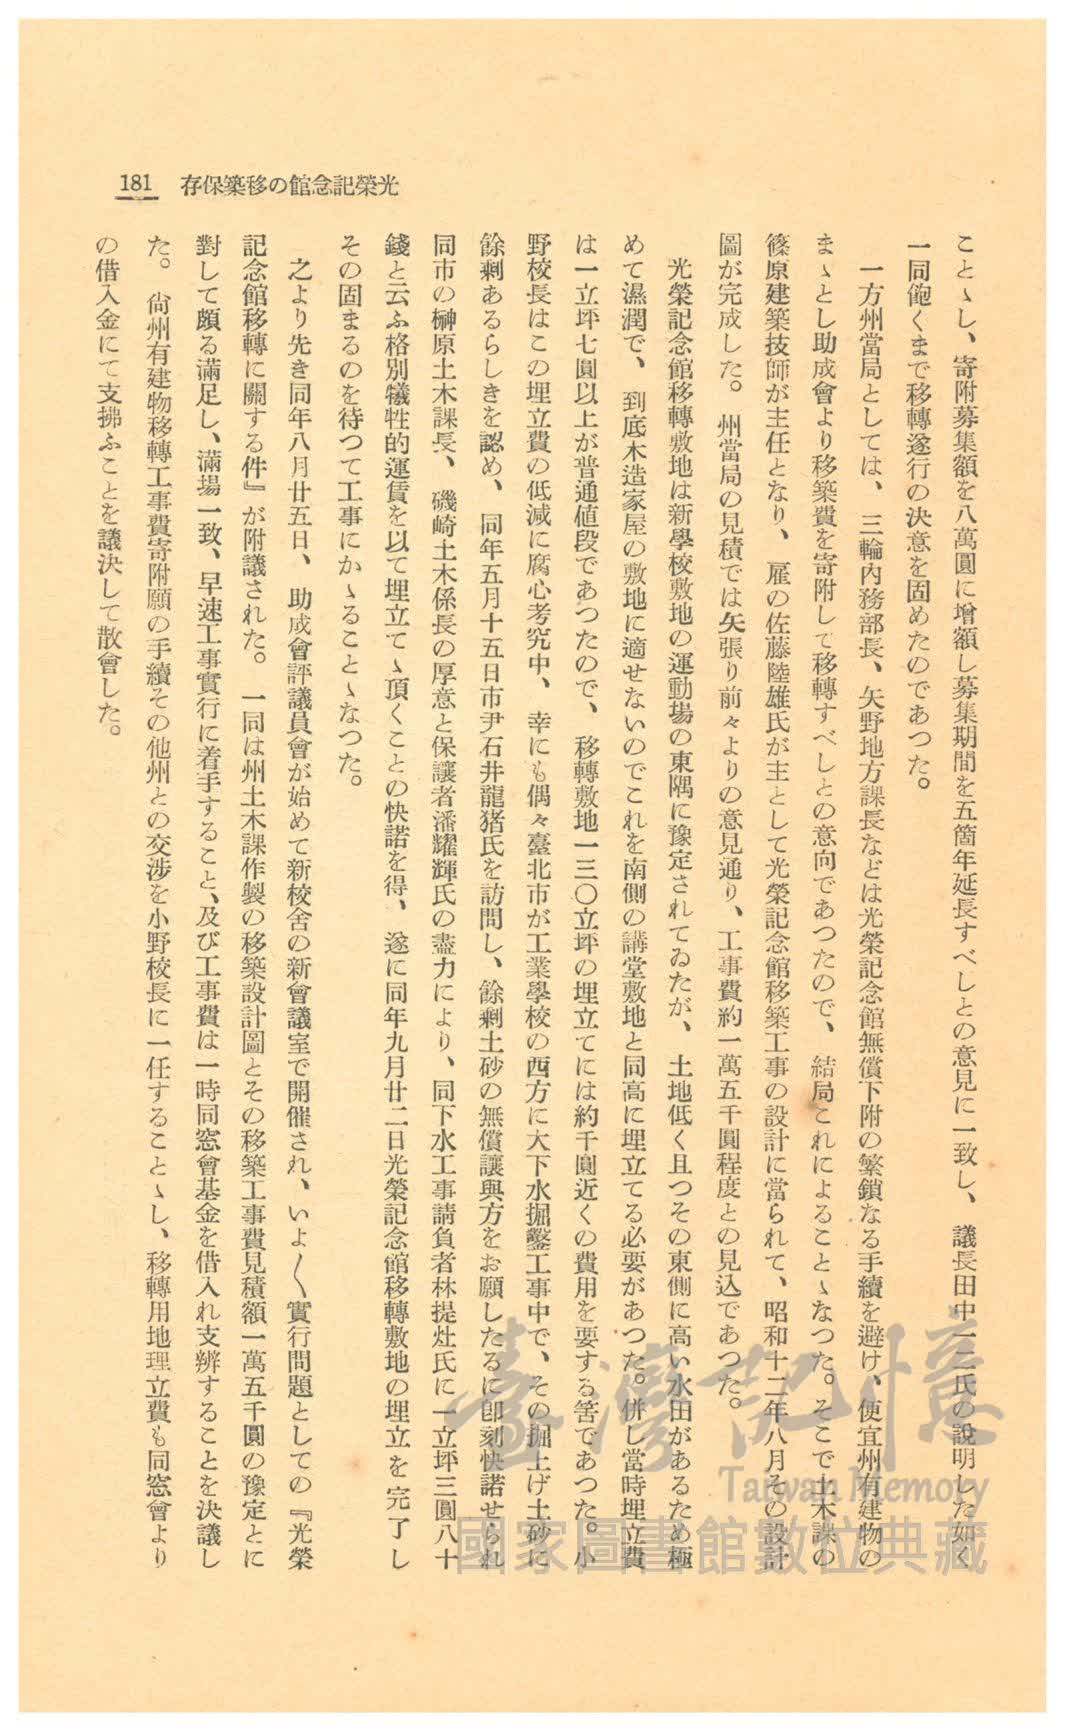 光榮記念館の移築保存 181
こと〻し、寄附募集額を八萬圓に增額し募集期間を五箇年延長すべしとの意見に一致し、議長田中一二氏の說明した如く
一同飽くまで移轉遂行の決意を固めたのであつた。
一方州當局としては、三輪內務部長、矢野地方課長などは光榮記念館無償下附の繁鎖なる手續を避け、便宜州有建物の
ま〻とし助成會より移築費を寄附して移轉すべしとの意向であつたので、結局これによること〻なつた。そこで土木課の
篠原建築技師が主任となり、雇の佐藤陸雄氏が主として光榮記念館移築工事の設計に當られて、昭和十二年八月その設計
圖が完成した。州當局の見積では矢張り前々よりの意見通り、工事費約一萬五千圓程度との見込であつた。
光榮記念館移轉敷地は新學校敷地の運動場の東隅に豫定されてゐたが、土地低く且つその東側に高い水田があるため極
めて濕潤で、到底木造家屋の敷地に適せないのでこれを南側の講堂敷地と同高に埋立てる必要があつた。併し當時埋立費
は一立坪七圓以上が普通値段であつたので、移轉敷地一三〇立坪の埋立てには約千圓近くの費用を要する筈であつた。小
野校長はこの埋立費の低減に腐心考究中、幸にも偶々臺北市が工業學校の西方に大下水掘鑿工事中で、その掘上げ土砂に
餘剩あるらしきを認め、同年五月十五日市尹石井龍猪氏を訪問し、餘剩土砂の無償讓與方をお願したるに卽刻快諾せられ
同市の榊原土木課長、磯崎土木係長の厚意と保讓者潘耀輝氏の盡力により、同下水工事請負者林提灶氏に一立坪三圓八十
錢と云ふ格別犧牲的運賃を以て埋立て〻頂くことの快諾を得、遂に同年九月廿二日光榮記念館移轉敷地の埋立を完了し
その固まるのを待つて工事にか〻ること〻なつた。
之より先き同年八月廿五日、助成會評議員會が始めて新校舍の新會議室で開催され、いよ〱實行問題としての『光榮
記念館移轉に關する件』が附議された。一同は州土木課作製の移築設計圖とその移築工事費見積額一萬五千圓の豫定とに
對して頗る滿足し、滿場一致、早速工事實行に着手すること、及び工事費は一時同窓會基金を借入れ支辨することを決議し
た。尙州有建物移轉工事費寄附願の手續その他州との交涉を小野校長に一任すること〻し、移轉用地埋立費も同窓會より
の借入金にて支拂ふことを議決して散會した。
臺灣記憶
Taiwan Memory
國家圖書館數位典藏